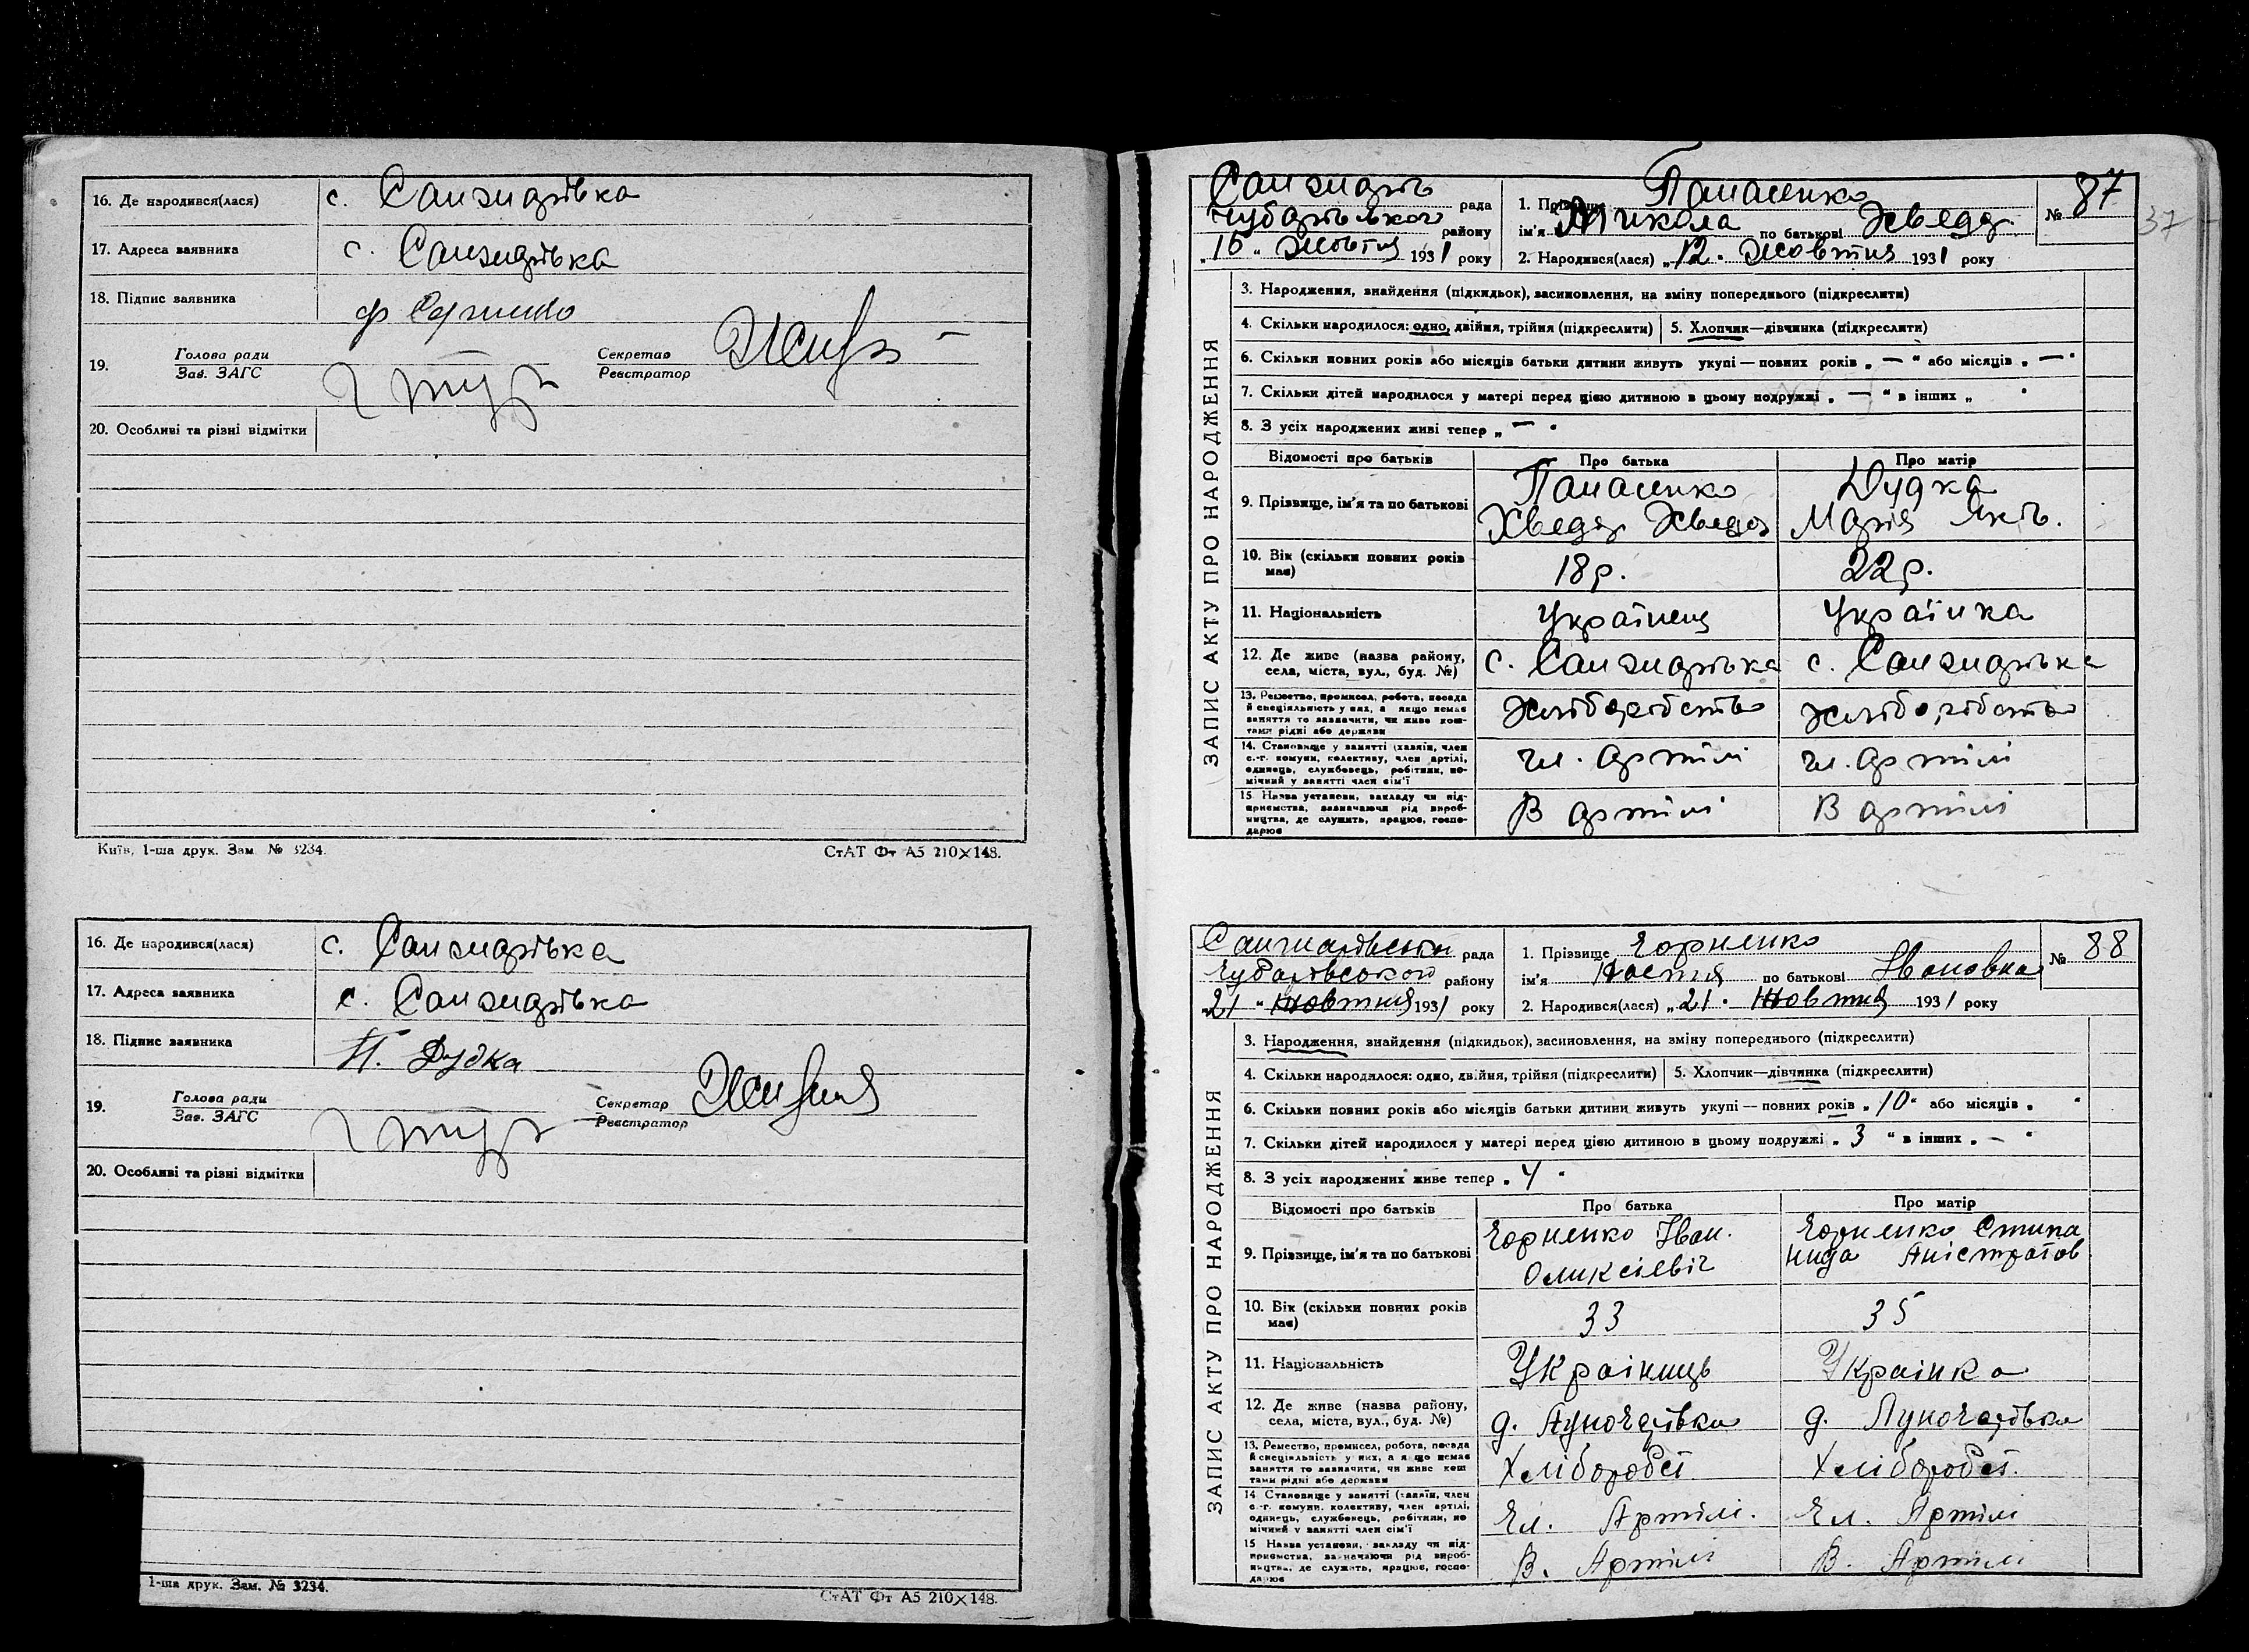 16. Де народився(лася) с. Санжарівка
17. Адреса заявника с. Санжарівка
18. Підпис заявника
19. Голова ради
Зав. ЗАГС
Секретар
Реєстратор
20. Особливі та різні відмітки
Київ, 1-ша друк. Зам. № 3234.
СтАТ Фт А5 210×148.
16. Де народився(лася) с. Санжарівка
17. Адреса заявника с. Санжарівка
18. Підпис заявника П. Дудка
19. Голова ради
Зав. ЗАГС
Секретар
Реєстратор
20. Особливі та різні відмітки
1-ша друк. Зам. № 3234.
СтАТ Фт А5 210×148.
Санжарів рада
Чубарівського району
„16“ Жовтня 1931 року
1. Прізвище Панасенко
ім'я Микола по батькові Хведор
2. Народився(лася) „12. Жовтня 1931 року
№ 87
37
ЗАПИС АКТУ ПРО НАРОДЖЕННЯ
3. Народження, знайдення (підкидьок), засиновлення, на зміну попереднього (підкреслити)
4. Скільки народилося: одно, двійня, трійня (підкреслити)
5. Хлопчик—дівчинка (підкреслити)
6. Скільки повних років або місяців батьки дитини живуть укупі — повних років „ — “ або місяців „ — “
7. Скільки дітей народилося у матері перед цією дитиною в цьому подружжі „ — “ в інших „ “
8. З усіх народжених живі тепер „ — “
Відомості про батьків Про батька Про матір
9. Прізвище, ім'я та по батькові
Панасенко
Хведор Хведор
Дудка
Марія Яків.
10. Вік (скільки повних років має) 18р. 22р.
11. Національність Українець Українка
12. Де живе (назва району,
села, міста, вул., буд. №)
с. Санжарівка с. Санжарівка
13. Ремество, промисел, робота, посада
й спеціяльність у них, а якщо немає
заняття то зазначити, чи живе кош-
тами рідні або держави
Хліборобство Хліборобство
14. Становище у занятті (хазяїн, член
с.-г. комуни, колективу, член артілі,
одинець, службовець, робітник, по-
мічний у занятті член сім'ї
чл. артілі чл. артілі
15 Назва установи, закладу чи під-
приємства, зазначаючи рід вироб-
ництва, де служить, працює, госпо-
дарює
В артілі В артілі
Санжарівської рада
Чубарівського району
„21“ Жовтня 1931 року
1. Прізвище Чорненко
ім'я Настя по батькові Івановна
2. Народився(лася) „21. Жовтня 1931 року
№ 88
ЗАПИС АКТУ ПРО НАРОДЖЕННЯ
3. Народження, знайдення (підкидьок), засиновлення, на зміну попереднього (підкреслити)
4. Скільки народилося: одно, двійня, трійня (підкреслити)
5. Хлопчик—дівчинка (підкреслити)
6. Скільки повних років або місяців батьки дитини живуть укупі — повних років „10“ або місяців „ “
7. Скільки дітей народилося у матері перед цією дитиною в цьому подружжі „3“ в інших „ — “
8. З усіх народжених живе тепер „4“
Відомості про батьків Про батька Про матір
9. Прізвище, ім'я та по батькові
Чорненко Іван.
Оликсієвіч
Чорненко Стипа
нида Аністратов
10. Вік (скільки повних років має) 33 35
11. Національність Украіниць Украінка
12. Де живе (назва району,
села, міста, вул., буд. №)
д. Луночарівка д. Луночарівка
13. Ремество, промисел, робота, посада
й спеціяльність у них, а якщо немає
заняття то зазначити, чи живе кош
тами рідні або держави
Хлібороб Хлібороб
14 Становище у занятті (хазяїн, член
с.-г. комуни, колективу, член артілі,
одинець, службовець, робітник, по
мічний у занятті член сім'ї
Чл. Артілі. Чл. Артілі
15 Назва установи, закладу чи під-
приємства, зазначаючи рід вироб-
ництва, де служить, працює, госпо-
дарює
В. Артілі В. Артілі